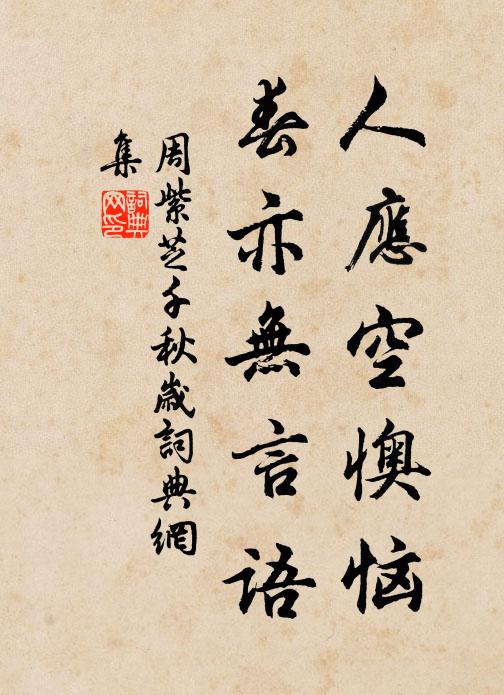 人應空懊恼
春亦無言語
周紫芝千秋歲詞典網
集
詞典
网印